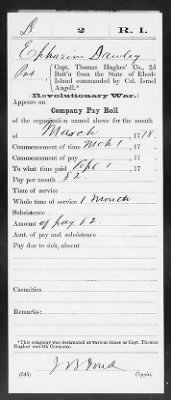 D 2 R. I.
Ephraim Dawley
Capt. Thomas Hughes' Co., 2d
Batt'n from the State of Rhode
Island commanded by Col. Israel
Angell.*
(Revolutionary War.)
Appears on
Company Pay Roll
of the organization named above for the month
of March, 1778.
Commencement of time Mch 1, 17
Commencement of pay, 17
To what time paid Apl 1, 17
Pay per month £2.
Time of service
Whole time of service 1 Month
Subsistence
Amount of pay £2.
Amt. of pay and subsistence
Pay due to sick, absent
Casualties
Remarks:
*This company was designated at various times as Capt. Thomas
Hughes' and 4th Company.
(545) Copyist.